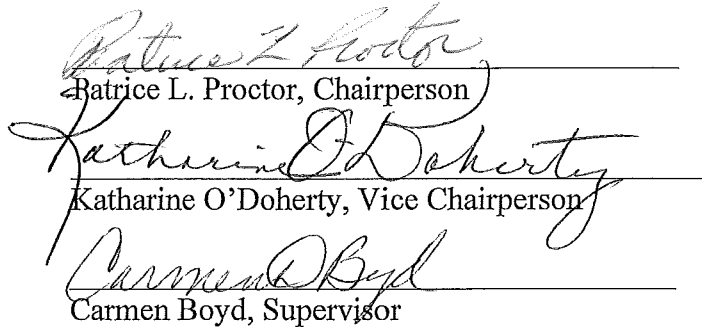 Patrice L Proctor
Patrice L. Proctor, Chairperson
Katharine O'Doherty
Katharine O’Doherty, Vice Chairperson
Carmen D Boyd
Carmen Boyd, Supervisor